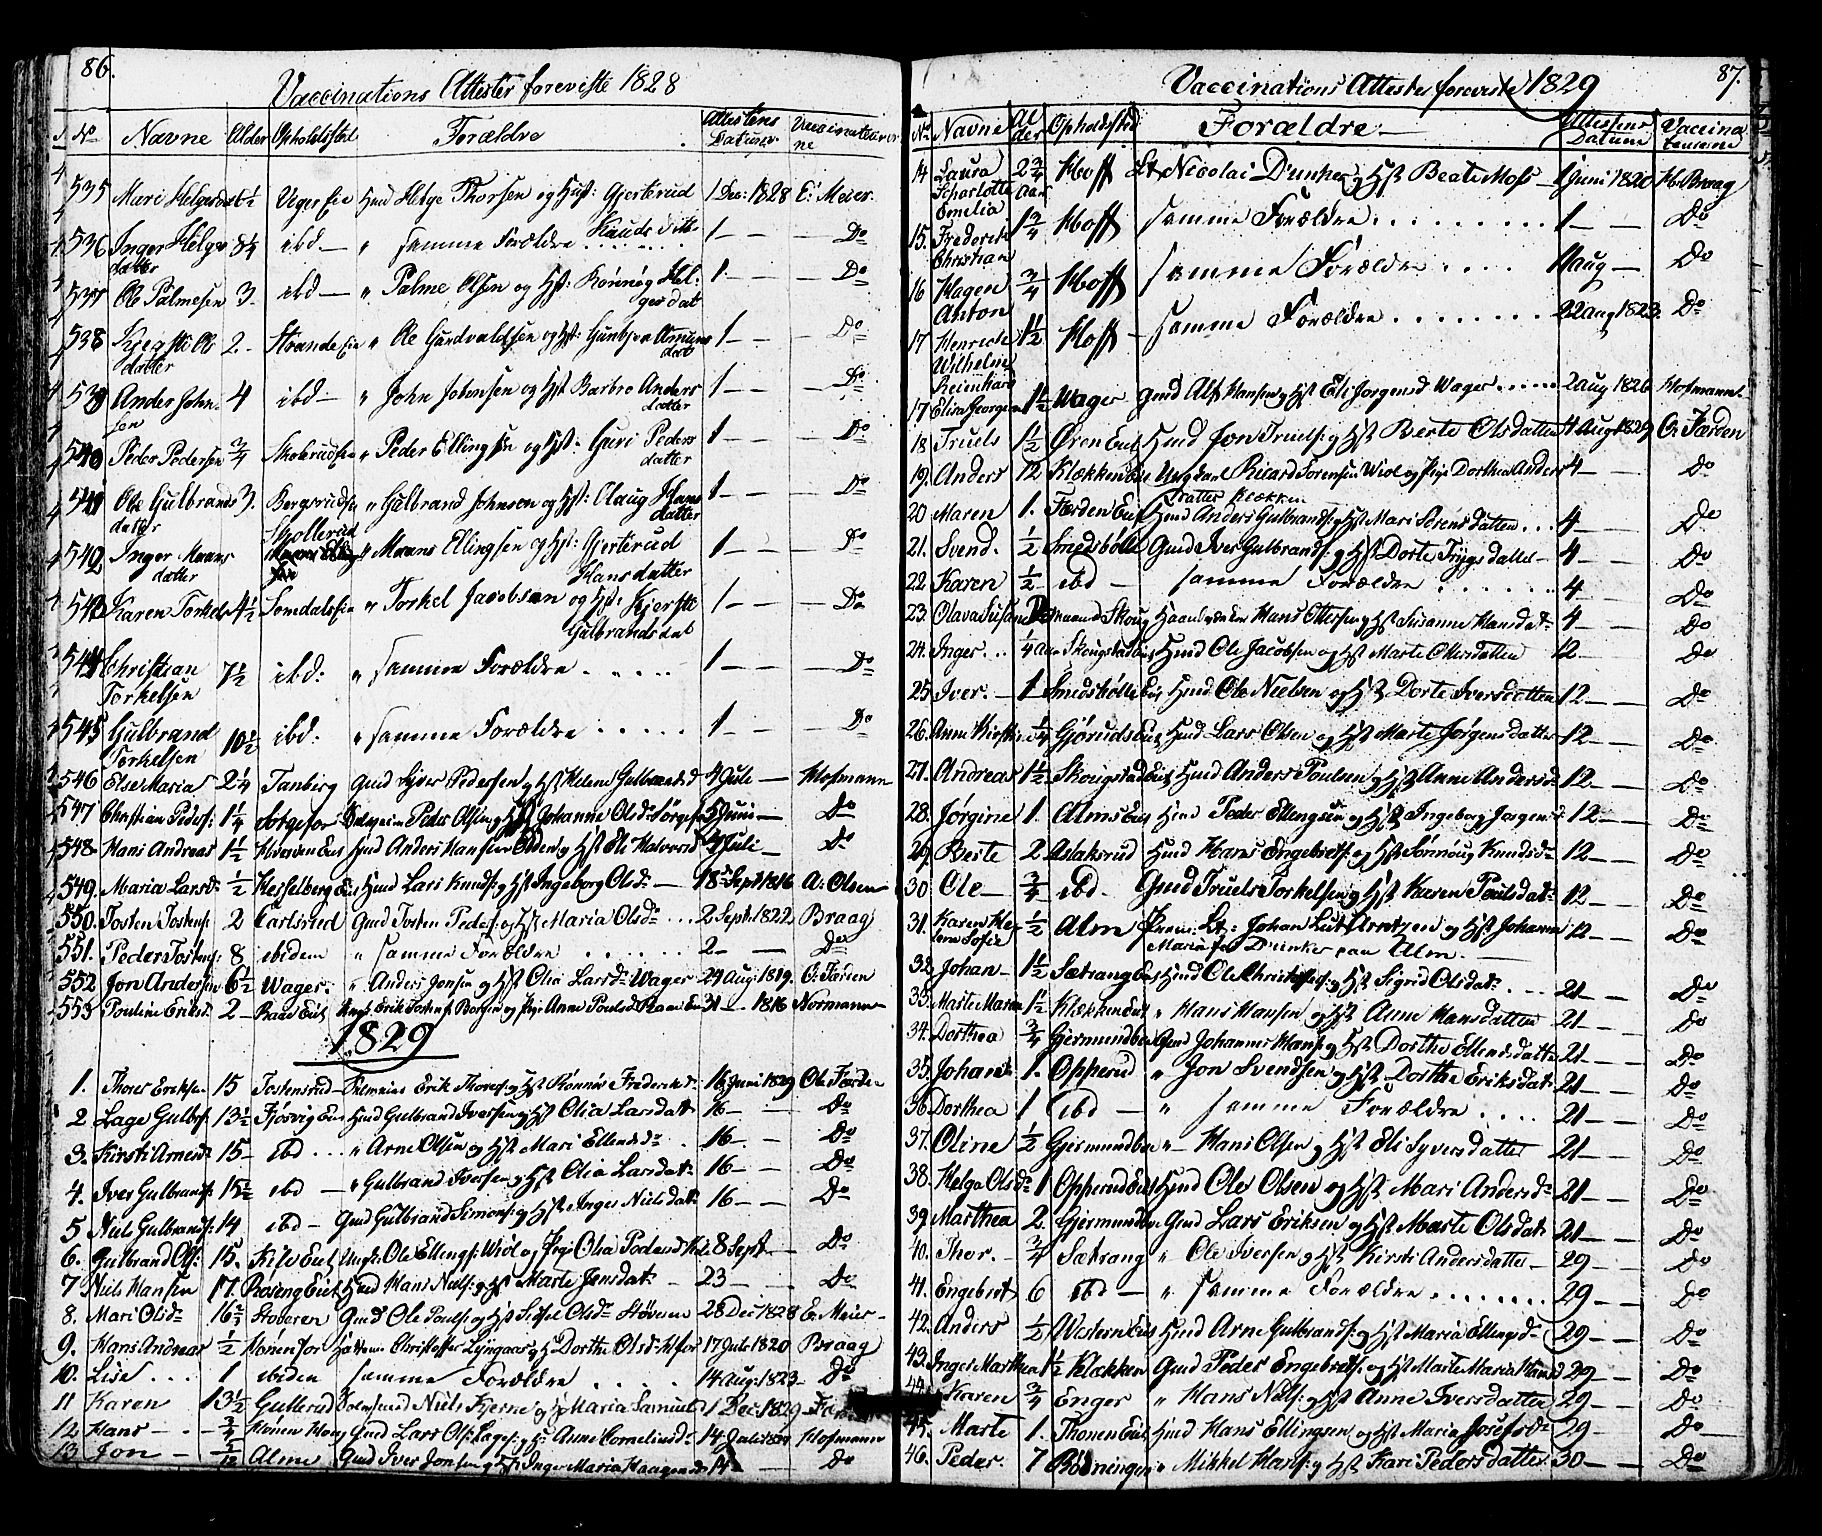 86.
Vaccinations Attester foreviste 1828
No Navne Alder Opholdsstæd Forældre Attestens Datum Vaccinateurerne
535 Mari Helgersd Huusmand Helge Thorsen og Hust: Gjertrud Knuds datt: 1 Dec: 1828 E: Meier.
536 Inger Helgesdatter ibd — " samme Forældre 1 — — Do
537 Ole Palmesen 3. ibd — " Palme Olsen og Hst: Rønnøg Helgersdat 1 — — Do
538 Kjersti Olsdatter 2. Strande Eie " Ole Gundvaldsen og Hst: Gunbjør Amunsdat 1 — — Do
539 Ander Johnsen 4 ibd — " John Johnsen og Hst Barbro Andersdatter 1 — — Do
540 Peder Pedersen 3/4 " Peder Ellingsen og Hst: Guri Pedersdatter 1 — — Do
541 Ole Gulbrandsdatter 3. " Gulbrand Johnsen og Hst: Olaug Hansdatter 1 — — Do
542 Inger Maansdatter Skollerud " Maans Ellingsen og Hst: Gjertrud Hansdatter 1 — — Do
543 Karen Torkels 4 1/2 Somdalseie " Torkel Jacobsen og Hst: Kjersti Gulbrandsdat 1 — — Do
544 Christian Torkelsen 7 1/2 ibd: " samme Forældre 1 — — Do
545 Gulbrand Torkelsen 10 1/2 ibd: " samme Forældre 1 — — Do
546 Else Maria 2 1/4 Tanberg Gmd Syver Pedersen og Hst Helene Gulbrandsd 4 Juli — Hofmann
547 Christian Peders: 1 1/4 Peder Olsen og Hst Johanne Olsd: 5 Juni — Do
548 Hans Andreas 1 1/2 Hmd Anders Hansen og Hst Eli Halvorsd 4 Juli — Do
549. Maria Larsd: 1/2 Hesselberg Eie Hmd Lars Knuds: og Hst Ingeborg Olsd: — 18 Sept 1816 A: Olsen
550. Tosten Tostens: 2 Carlsrud Gmd Tosten Peders: og Hst Maria Olsd: 2 Sept. 1822 Braag
551. Peder Tostens: 8 ibidem " samme Forældre 2 — Do
552 Jon Andersen 6 1/2 Wager. " Anders Jonsen og Hst Olia Larsd: Wager 24 Aug: 1819. O: Færden
553 Pouline Eriksd: 2 — Erik Tostens: og Pige Anne Poulsd 31 — 1816 Normann
1829
1. Thorer Eriksen 15 Tostensrud Erik Thores: og Hst Rønnøv Frederiksd: 16 Juni 1829 Ole Færden
2 Lage Gulbrs: 13 1/2 Fjøsvig Eie Hmd Gulbrand Iversen og Hst Olia Larsdat: 16 — Do
3. Kirsti Arnesd: 15 — ibd " Arne Olsen og Hst Mari Ellendsd: 16 — Do
4. Iver Gulbrands: 15 1/2 ibd — " Gulbrand Iversen og Hst Olia Larsdat: 16 — Do
5 Niels Gulbrands: 14 ibd — Gmd Gulbrand Simons: og Hst Inger Nielsdat: 16 — Do
6. Gulbrand Ols: 15. Ungk: Ole Ellings: Wiøl og Pige Olia 8 Sept — Do
7 Niels Hansen 17. Hmd Hans Niels: og Hst Marte Jensdat: — 23 — Do
8. Mari Olsd: 16 1/2 Støveren Gmd Ole Pouls: og Hst Sidsel Olsd: Støveren 28 Dec 1828 E: Meier —
9. Hans Andreas 1/2 Hønen for Christoffer Lyngaas og Hst Dorthe Olsd: 17 Juli 1820 Braag
10. Lise 1 ibidem samme Forældre 14 Aug: 1823 Do
11 Karen 13 1/2 Gullerud Niels Hjerne og Maria Samuels 1 Dec: 1829
12. Hans — 3/4 Gmd Lars Ols: og Anne Corneliusd: 14 Juli Hofmann
13. Jon — Alme Gmd Iver Jonsen og Hst Inger Maria Haagensd: 14 Do
87.
Vaccinations Attester foreviste 1829
No Navne Alder Opholdsted Forældre — Attestens Datum Vaccinateurerne
14 Laura Scharlotte Emelia 2 3/4 aar Hoff Lt Nicolai Dunker og Hst Beate Moss — 1 Juni 1820 Hr Braag
15. Frederik Christian 1 3/4 Hoff samme Forældre 1 — Do
16 Hagen Anton 3/4 Hoff samme Forældre 11 Aug — Do
17 Henrich Wilhelm Reinhard 1 1/2 Hoff — samme Forældre 22 Aug 1823. Do
17. Elisa Georgine 1 1/2 Wager Gmd Alf Hansen og Hst Eli Jørgensd Wager 2 Aug 1826 Hofmann
18 Truels 1 1/2 Øren Eie Hmd Jon Truels: og Hst Berte Olsdatter 4 Aug 1829 O: Færden
19. Anders 12 Klækken Eie Ungkarl Ricard Sørensen Wiøl og Pige Dorthea Andersdatter Klækken 4 — Do
20 Maren 1. Færden Eie Hmd Anders Gulbrands: og Hst Mari Sørensdatter 4 — Do
21. Svend. 1/2 Smedsbølle Gmd Iver Gulbrands: og Hst Dorte Trygsdatter — 4 — Do
22. Karen 1/2 ibd — samme Forældre 4 — Do
23. Olava Susanne Skoug Hans Ottersen og Hst Susanne Hansdat: 4 — Do
24. Inger 1/4 aar Skougstad Eie Hmd Ole Jacobsen og Hst Marte Ottersdatter 12 — Do
25. Iver. — 1 Smedsbølle Eie Hmd Ole Nielsen og Hst Dorte Iversdatter 12 — Do
26. Anne Kirstine 1/4 Gjøruds Eie Hmd Lars Olsen og Hst Marte Jørgensdatter 12 — Do
27. Andreas 1 1/2 Skougstad Eie Hmd Anders Poulsen og Hst Anne Andersd: 12 — Do
28. Jørgine 1. Alms Eie Hmd Peder Ellengsen og Hst Ingeborg Jørgensd: 12 — Do
29. Berte 2 Aslaksrud Hmd Hans Engebrets: og Hst Sønnoug Knudsd: 12 — Do
30 Ole — 3/4 ibd. — Gmd Truels Torkelsen og Hst Karen Poulsdat: 12 — Do
31. Karen Helene Sofie 1/2 Alme Prem: Lt: Johan Arntzen og Hst Johanne Maria f. Dunker paa Alm. 12 — Do
32. Johan — 1 1/2 Sætrang Eie Hmd Ole Christoffers: og Hst Sigrid Olsdat: 21 — Do
33. Marte Maria 1 1/2 Klækken Eie " Hans Hansen og Hst Anne Hansdatter 21 — Do
34. Dorthea 3/4 Gjermundboe Gmd Johannes Hans: og Hst Dorthe Ellendsdatter 21 — Do
35. Johan 1. Opperud " Jon Svendsen og Hst Dorthe Eriksdat: 21 — Do
36. Dorthea 1 ibd — " samme Forældre 21 — Do
37. Oline 1/2 Gjermundboe " Hans Olsen og Hst Eli Syversdatter 21 — Do
38. Helge Olsd: 1 Opperud Eie Hmd Ole Olsen og Hst Mari Andersd: 21 — Do
39. Marthea 2. Gjermundboe Gmd Lars Eriksen og Hst Marte Olsdat: 21 — Do
40. Thor. — 3/4 Sætrang " Ole Iversen og Hst Kirsti Andersdatter — 29 — Do
41. Engebret 6 ibd — " samme Forældre 29 — Do
42. Anders 1/2 Western Eie Hmd Arne Gulbrands: og Hst Maria Ellingsd: 29 — Do
43. Inger Marthea 1 1/2 Klækken Gmd Peder Engebrets: og Hst Marte Maria Hansd 29 — Do
44. Karen 3/4 Enger " Hans Niels: og Hst Anne Iversdatter 29 — Do
45. Marte 1. Thonen Eie Hmd Hans Ellingsen og Hst Maria Josefsd: 29 — Do
46. Peder. 7 Rødningen " Mikkel Hans: og Hst Kari Pedersdatter 30 — Do